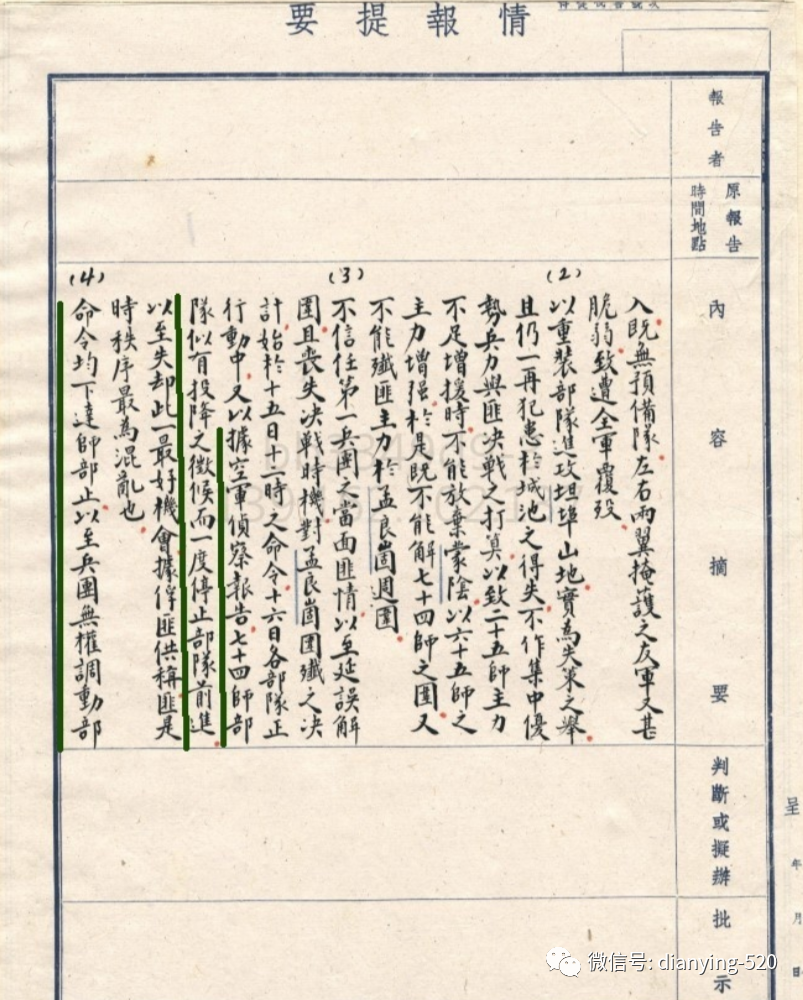 情報提要
報告者
原報告
時間地點
內容摘要
判斷或擬辦
批示
入既無預備隊左右兩翼掩護之友軍又甚
脆弱致遭全軍覆歿
(2)
以重裝部隊進攻坦埠山地實為失策之舉
且仍一再犯患於城池之得失不作集中優
勢兵力與匪決戰之打算以致二十五師主力
不足增援時不能放棄蒙陰以六十五師之
主力增强於是既不能解七十四師之圍又
不能殲匪主力於孟良崮週圍
(3)
不信任第一兵團之當面匪情以至延誤解
圍且喪失決戰時機對孟良崮圍殲之決
計始於十五日十二時之命令十六日各部隊正
行動中又以據空軍偵察報告七十四師部
隊似有投降之徵候而一度停止部隊前進
以至失却此一最好機會據俘匪供稱匪是
時秩序最為混亂也
(4)
命令均下達師部止以至兵團無權調動部
呈
年
月
日
微信号: dianying-520